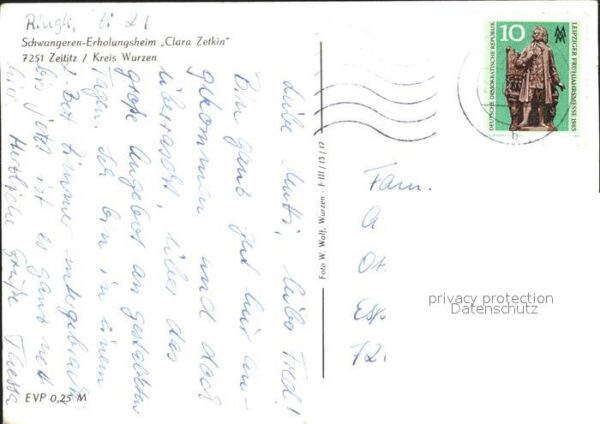 Ringk, li 21
Schwangeren-Erholungsheim „Clara Zetkin"
7251 Zeititz / Kreis Wurzen
Liebe Mutti, lieber Fred!
Bin ganz gut hier an-
gekommen und doch
überrascht, über das
große Angebot an gestalteten
Tagen. Ich bin in einem
2 Bett Zimmer untergebracht
bis jetzt ist es ganz nett
hier Herzliche Grüße
EVP 0,25 M
Foto W. Wolf, Wurzen - F III/15/17
10
DEUTSCHE DEMOKRATISCHE REPUBLIK
LEIPZIGER FRÜHJAHRSMESSE 1985
Fam.
A
Ot
Esp
72.
privacy protection
Datenschutz